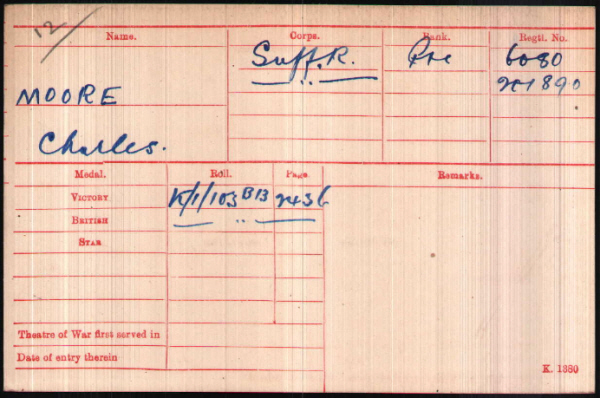 12
Name. Corps. Rank. Regtl. No.
Suff. R. Pte 6080
MOORE " 201890
Charles.
Medal. Roll. Page. Remarks.
VICTORY K/1/103 B13 2436
BRITISH "
STAR
Theatre of War first served in
Date of entry therein
K. 1380